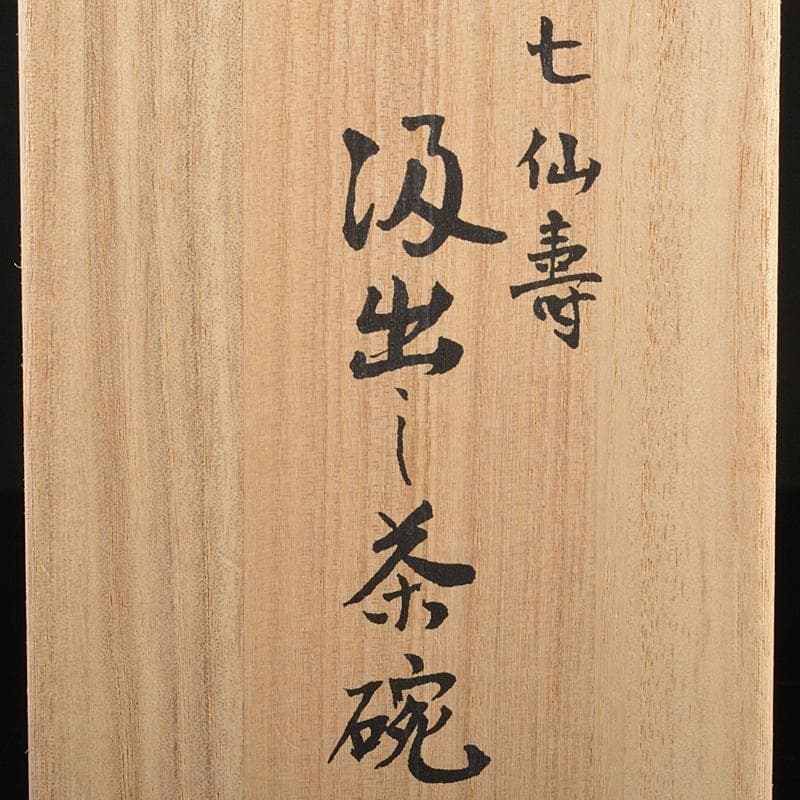 七仙壽
汲出し茶碗